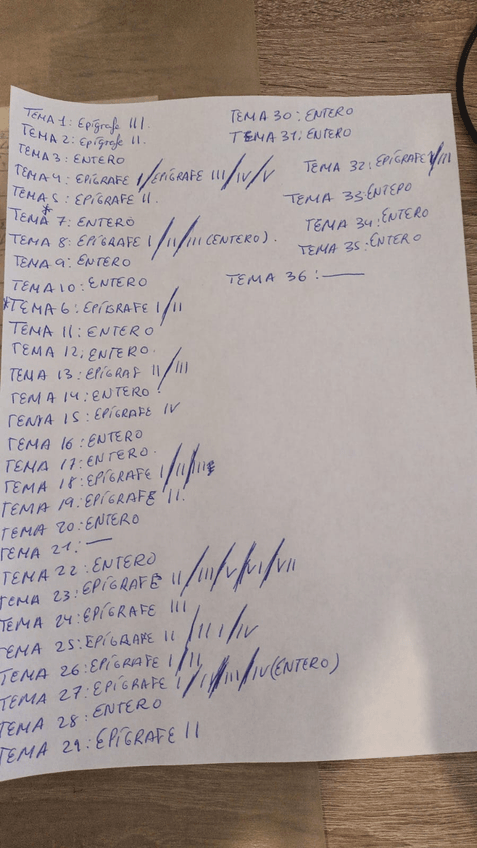 TEMA 1: Epígrafe III.
TEMA 2: Epígrafe II.
TEMA 3: ENTERO
TEMA 4: EPÍGRAFE I/EPÍGRAFE III/IV/V
TEMA 5: EPÍGRAFE II.
TEMA* 7: ENTERO
TEMA 8: EPÍGRAFE I/II/III(ENTERO).
TEMA 9: ENTERO
TEMA 10: ENTERO
*TEMA 6: EPÍGRAFE I/II
TEMA 11: ENTERO
TEMA 12: ENTERO.
TEMA 13: EPÍGRAF II/III
TEMA 14: ENTERO.
TEMA 15: EPÍGRAFE IV
TEMA 16: ENTERO
TEMA 17: ENTERO.
TEMA 18: EPÍGRAFE I/II/III
TEMA 19: EPÍGRAFE II.
TEMA 20: ENTERO
TEMA 21: —
TEMA 22: ENTERO
TEMA 23: EPÍGRAFE II/III/V/VI/VII
TEMA 24: EPÍGRAFE III
TEMA 25: EPÍGRAFE II/III/IV
TEMA 26: EPÍGRAFE I/II
TEMA 27: EPÍGRAFE I/II/III/IV(ENTERO)
TEMA 28: ENTERO
TEMA 29: EPÍGRAFE II
TEMA 30: ENTERO
TEMA 31: ENTERO
TEMA 32: EPÍGRAFE I/III
TEMA 33: ENTERO
TEMA 34: ENTERO
TEMA 35: ENTERO
TEMA 36: —